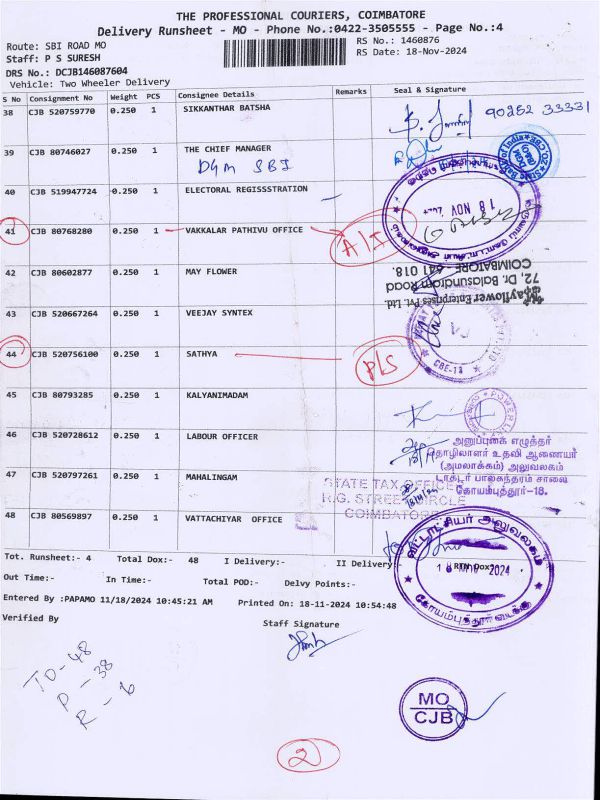 THE PROFESSIONAL COURIERS, COIMBATORE
Delivery Runsheet - MO - Phone No.:0422-3505555 - Page No.:4
Route: SBI ROAD MO
RS No.: 1460876
Staff: P S SURESH
RS Date: 18-Nov-2024
DRS No.: DCJB146087604
Vehicle: Two Wheeler Delivery
S No Consignment No Weight PCS Consignee Details Remarks Seal & Signature
38 CJB 520759770 0.250 1 SIKKANTHAR BATSHA
90252 33331
39 CJB 80746027 0.250 1 THE CHIEF MANAGER
DGM SBI
40 CJB 519947724 0.250 1 ELECTORAL REGISSSTRATION
18 NOV
41 CJB 80768280 0.250 1 VAKKALAR PATHIVU OFFICE
A/I
42 CJB 80602877 0.250 1 MAY FLOWER
Mayflower Enterprises Pvt. Ltd.
72, Dr. Balasundram Road
COIMBATORE - 641 018.
43 CJB 520667264 0.250 1 VEEJAY SYNTEX
CBE-18
44 CJB 520756100 0.250 1 SATHYA
P/S
45 CJB 80793285 0.250 1 KALYANIMADAM
POWER LINK
46 CJB 520728612 0.250 1 LABOUR OFFICER
அனுப்புகை எழுத்தர்
தொழிலாளர் உதவி ஆணையர்
(அமலாக்கம்) அலுவலகம்
டாக்டர் பாலசுந்தரம் சாலை
கோயம்புத்தூர்-18.
47 CJB 520797261 0.250 1 MAHALINGAM
STATE TAX OFFICER
R.G. STREET CIRCLE
COIMBATORE
48 CJB 80569897 0.250 1 VATTACHIYAR OFFICE
வட்டாட்சியர் அலுவலகம்
18 NOV 2024
கோயம்புத்தூர்
Tot. Runsheet:- 4 Total Dox:- 48 I Delivery:- II Delivery RTN Dox
Out Time:- In Time:- Total POD:- Delvy Points:-
Entered By :PAPAMO 11/18/2024 10:45:21 AM Printed On: 18-11-2024 10:54:48
Verified By
Staff Signature
TD-48
P - 38
R - 6
MO
CJB
2